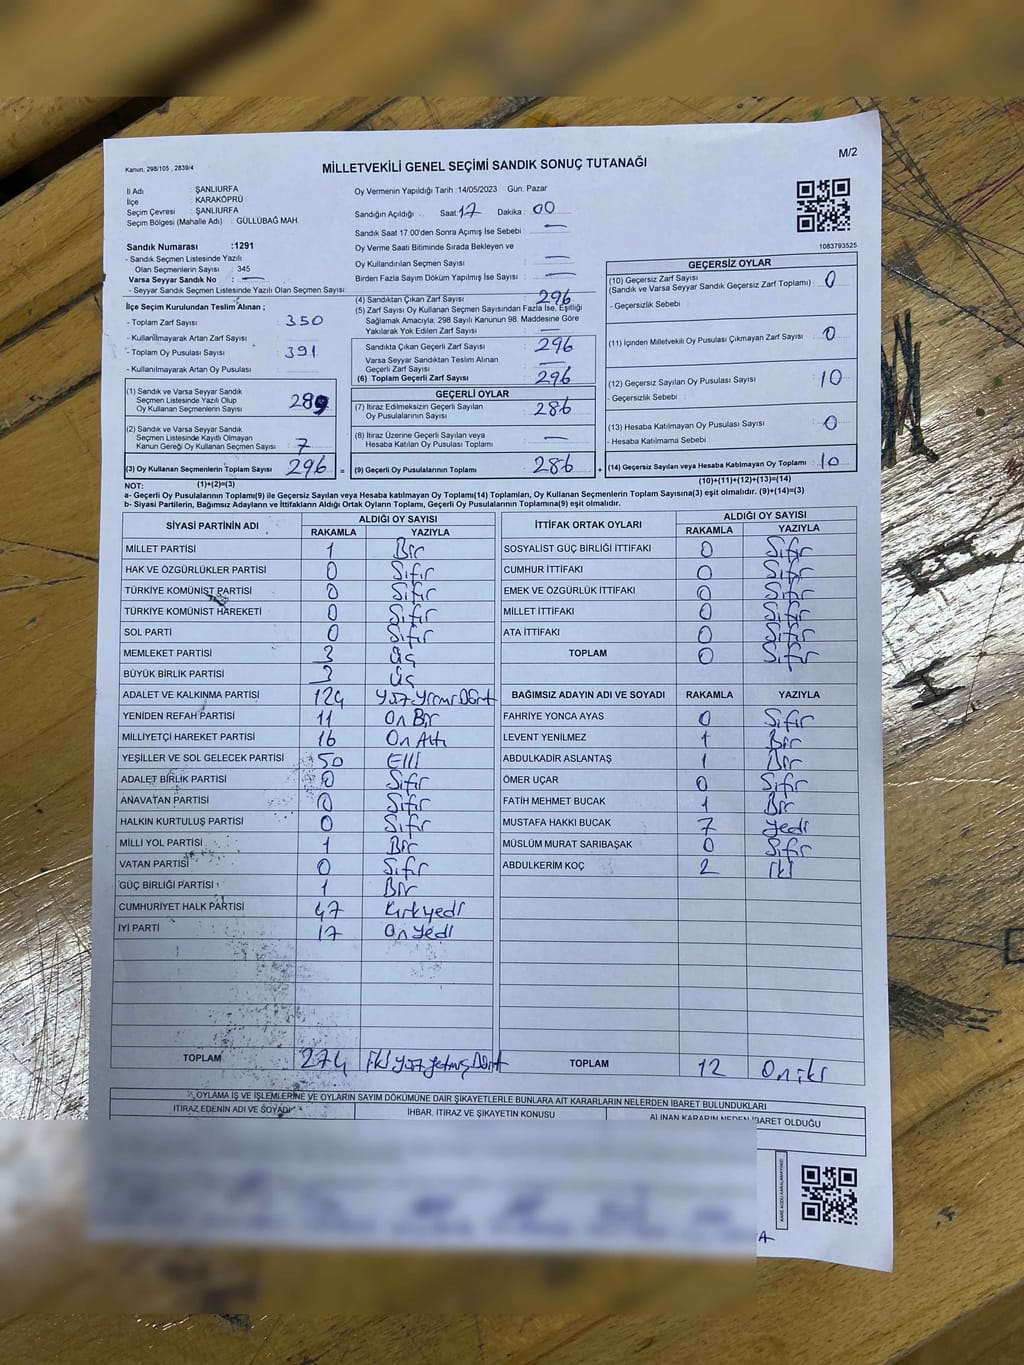 Kanun, 298/105 , 2839/4
MİLLETVEKİLİ GENEL SEÇİMİ SANDIK SONUÇ TUTANAĞI
M/2
İl Adı : ŞANLIURFA
İlçe : KARAKÖPRÜ
Seçim Çevresi : ŞANLIURFA
Seçim Bölgesi (Mahalle Adı) : GÜLLÜBAĞ MAH.
Sandık Numarası :1291
- Sandık Seçmen Listesinde Yazılı
Olan Seçmenlerin Sayısı : 345
Varsa Seyyar Sandık No : —
- Seyyar Sandık Seçmen Listesinde Yazılı Olan Seçmen Sayısı
Oy Vermenin Yapıldığı Tarih :14/05/2023 Gün: Pazar
Sandığın Açıldığı : Saat 17 Dakika : 00
Sandık Saat 17.00'den Sonra Açımış İse Sebebi : —
Oy Verme Saati Bitiminde Sırada Bekleyen ve
Oy Kullandırılan Seçmen Sayısı : —
Birden Fazla Sayım Döküm Yapılmış İse Sayısı : —
1083793525
İlçe Seçim Kurulundan Teslim Alınan ;
- Toplam Zarf Sayısı : 350
- Kullanılmayarak Artan Zarf Sayısı :
- Toplam Oy Pusulası Sayısı : 391
- Kullanılmayarak Artan Oy Pusulası :
(1) Sandık ve Varsa Seyyar Sandık
Seçmen Listesinde Yazılı Olup
Oy Kullanan Seçmenlerin Sayısı : 289
(2) Sandık ve Varsa Seyyar Sandık
Seçmen Listesinde Kayıtlı Olmayan
Kanun Gereği Oy Kullanan Seçmen Sayısı : 7
(3) Oy Kullanan Seçmenlerin Toplam Sayısı : 296
(1)+(2)=(3)
(4) Sandıktan Çıkan Zarf Sayısı : 296
(5) Zarf Sayısı Oy Kullanan Seçmen Sayısından Fazla İse, Eşitliği
Sağlamak Amacıyla; 298 Sayılı Kanunun 98. Maddesine Göre
Yakılarak Yok Edilen Zarf Sayısı : —
Sandıkta Çıkan Geçerli Zarf Sayısı : 296
Varsa Seyyar Sandıktan Teslim Alınan
Geçerli Zarf Sayısı : —
(6) Toplam Geçerli Zarf Sayısı : 296
GEÇERLİ OYLAR
(7) İtiraz Edilmeksizin Geçerli Sayılan
Oy Pusulalarının Sayısı : 286
(8) İtiraz Üzerine Geçerli Sayılan veya
Hesaba Katılan Oy Pusulası Toplamı : —
= (9) Geçerli Oy Pusulalarının Toplamı : 286 +
GEÇERSİZ OYLAR
(10) Geçersiz Zarf Sayısı
(Sandık ve Varsa Seyyar Sandık Geçersiz Zarf Toplamı) : 0
- Geçersizlik Sebebi :
(11) İçinden Milletvekili Oy Pusulası Çıkmayan Zarf Sayısı : 0
(12) Geçersiz Sayılan Oy Pusulası Sayısı : 10
- Geçersizlik Sebebi :
(13) Hesaba Katılmayan Oy Pusulası Sayısı : 0
- Hesaba Katılmama Sebebi :
(14) Geçersiz Sayılan veya Hesaba Katılmayan Oy Toplamı : 10
(10)+(11)+(12)+(13)=(14)
NOT:
a- Geçerli Oy Pusulalarının Toplamı(9) ile Geçersiz Sayılan veya Hesaba katılmayan Oy Toplamı(14) Toplamları, Oy Kullanan Seçmenlerin Toplam Sayısına(3) eşit olmalıdır. (9)+(14)=(3)
b- Siyasi Partilerin, Bağımsız Adayların ve İttifakların Aldığı Ortak Oyların Toplamı, Geçerli Oy Pusulalarının Toplamına(9) eşit olmalıdır.
SİYASİ PARTİNİN ADI ALDIĞI OY SAYISI
RAKAMLA YAZIYLA
MİLLET PARTİSİ 1 Bir
HAK VE ÖZGÜRLÜKLER PARTİSİ 0 Sıfır
TÜRKİYE KOMÜNİST PARTİSİ 0 Sıfır
TÜRKİYE KOMÜNİST HAREKETİ 0 Sıfır
SOL PARTİ 0 Sıfır
MEMLEKET PARTİSİ 3 Üç
BÜYÜK BİRLİK PARTİSİ 3 Üç
ADALET VE KALKINMA PARTİSİ 124 Yüz Yirmi Dört
YENİDEN REFAH PARTİSİ 11 On Bir
MİLLİYETÇİ HAREKET PARTİSİ 16 On Altı
YEŞİLLER VE SOL GELECEK PARTİSİ 50 Elli
ADALET BİRLİK PARTİSİ 0 Sıfır
ANAVATAN PARTİSİ 0 Sıfır
HALKIN KURTULUŞ PARTİSİ 0 Sıfır
MİLLİ YOL PARTİSİ 1 Bir
VATAN PARTİSİ 0 Sıfır
GÜÇ BİRLİĞİ PARTİSİ 1 Bir
CUMHURİYET HALK PARTİSİ 47 Kırkyedi
İYİ PARTİ 17 On Yedi
TOPLAM 274 İki Yüz Yetmiş Dört
İTTİFAK ORTAK OYLARI ALDIĞI OY SAYISI
RAKAMLA YAZIYLA
SOSYALİST GÜÇ BİRLİĞİ İTTİFAKI 0 Sıfır
CUMHUR İTTİFAKI 0 Sıfır
EMEK VE ÖZGÜRLÜK İTTİFAKI 0 Sıfır
MİLLET İTTİFAKI 0 Sıfır
ATA İTTİFAKI 0 Sıfır
TOPLAM 0 Sıfır
BAĞIMSIZ ADAYIN ADI VE SOYADI RAKAMLA YAZIYLA
FAHRİYE YONCA AYAS 0 Sıfır
LEVENT YENİLMEZ 1 Bir
ABDULKADİR ASLANTAŞ 1 Bir
ÖMER UÇAR 0 Sıfır
FATİH MEHMET BUCAK 1 Bir
MUSTAFA HAKKI BUCAK 7 Yedi
MÜSLÜM MURAT SARIBAŞAK 0 Sıfır
ABDULKERİM KOÇ 2 İki
TOPLAM 12 Oniki
OYLAMA İŞ VE İŞLEMLERİNE VE OYLARIN SAYIM DÖKÜMÜNE DAİR ŞİKAYETLERLE BUNLARA AİT KARARLARIN NELERDEN İBARET BULUNDUKLARI
İTİRAZ EDENİN ADI VE SOYADI İHBAR, İTİRAZ VE ŞİKAYETİN KONUSU ALINAN KARARIN NEDEN İBARET OLDUĞU
KARE KODU KARALAMAYINIZ!